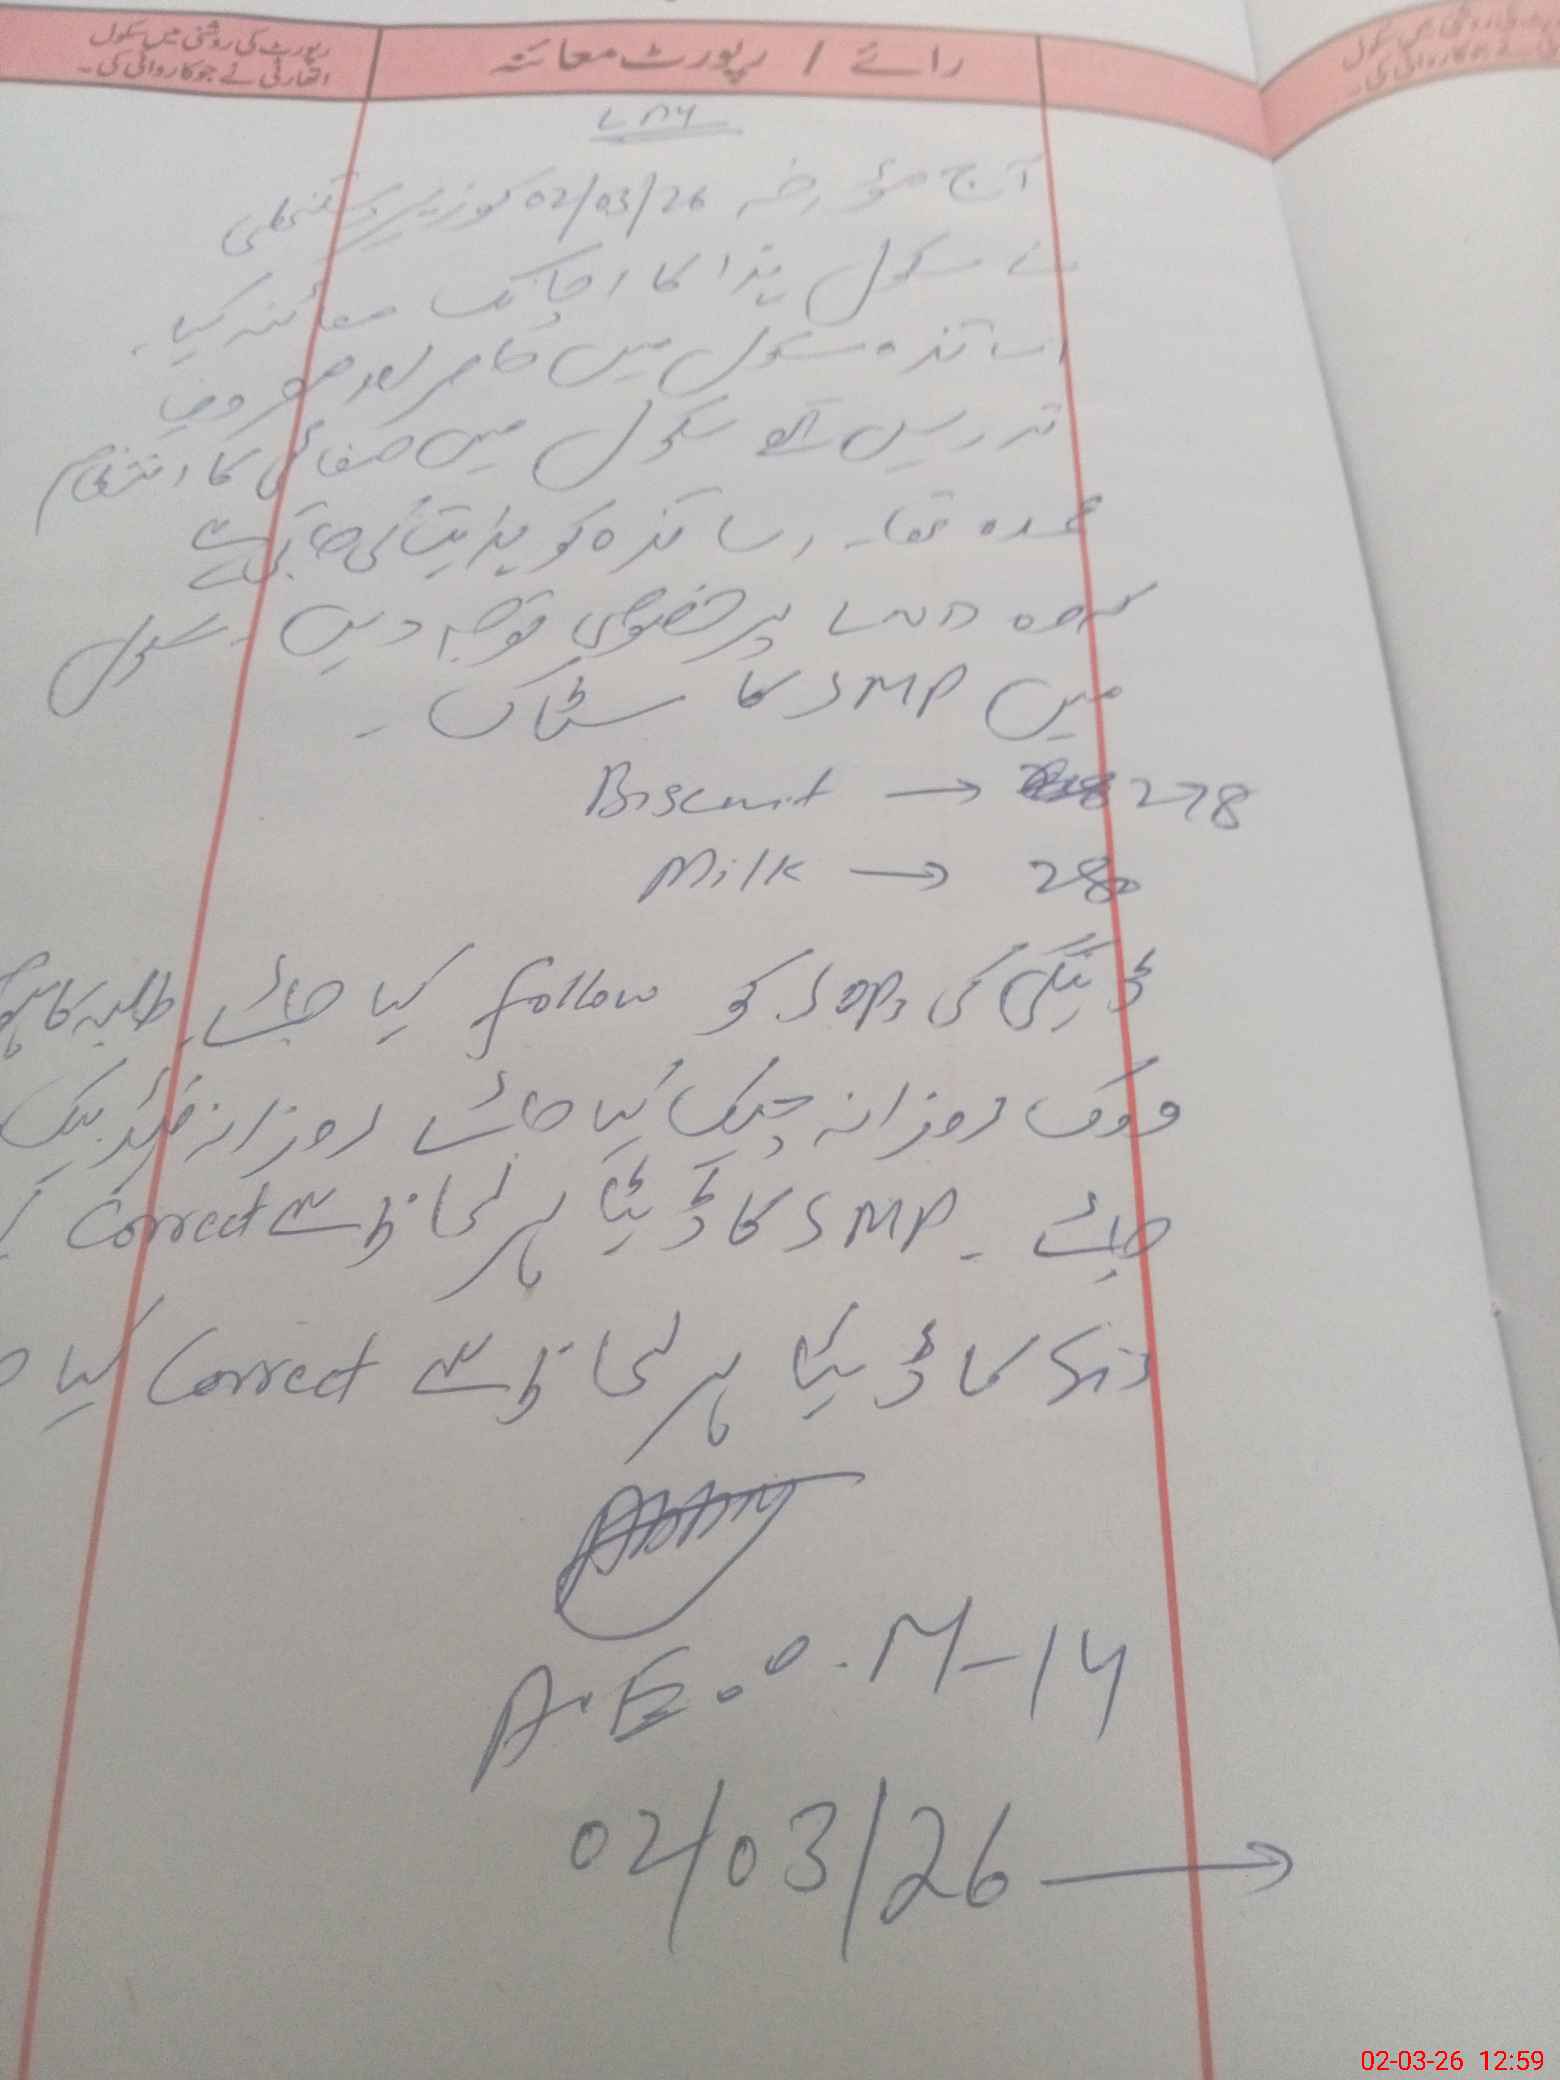 رپورٹ کی روشنی میں سکول
اتھارٹی نے جو کاروائی کی۔
رائے / رپورٹ معائنہ
آج مؤرخہ 02/03/26 کو زیر دستخطی
نے سکول ہذا کا اچانک معائنہ کیا۔
اساتذہ سکول میں حاضر اور مصروف
تدریس تھے سکول میں صفائی کا انتظام
عمدہ تھا۔ اساتذہ کو ہدایت کی جاتی ہے
کہ وہ LND پر خصوصی توجہ دیں۔ سکول
میں SMP کا سٹاک۔
Biscuit → 278
Milk → 280
ڈینگی کی SOPs کو follow کیا جائے۔ طلبہ کا ہوم
ورک روزانہ چیک کیا جائے روزانہ فیڈ بیک
جائے۔ SMP کا ڈیٹا ہر لحاظ سے Correct
کا ڈیٹا ہر لحاظ سے Correct کیا
A.E.O. M-14
02/03/26 →
02-03-26 12:59